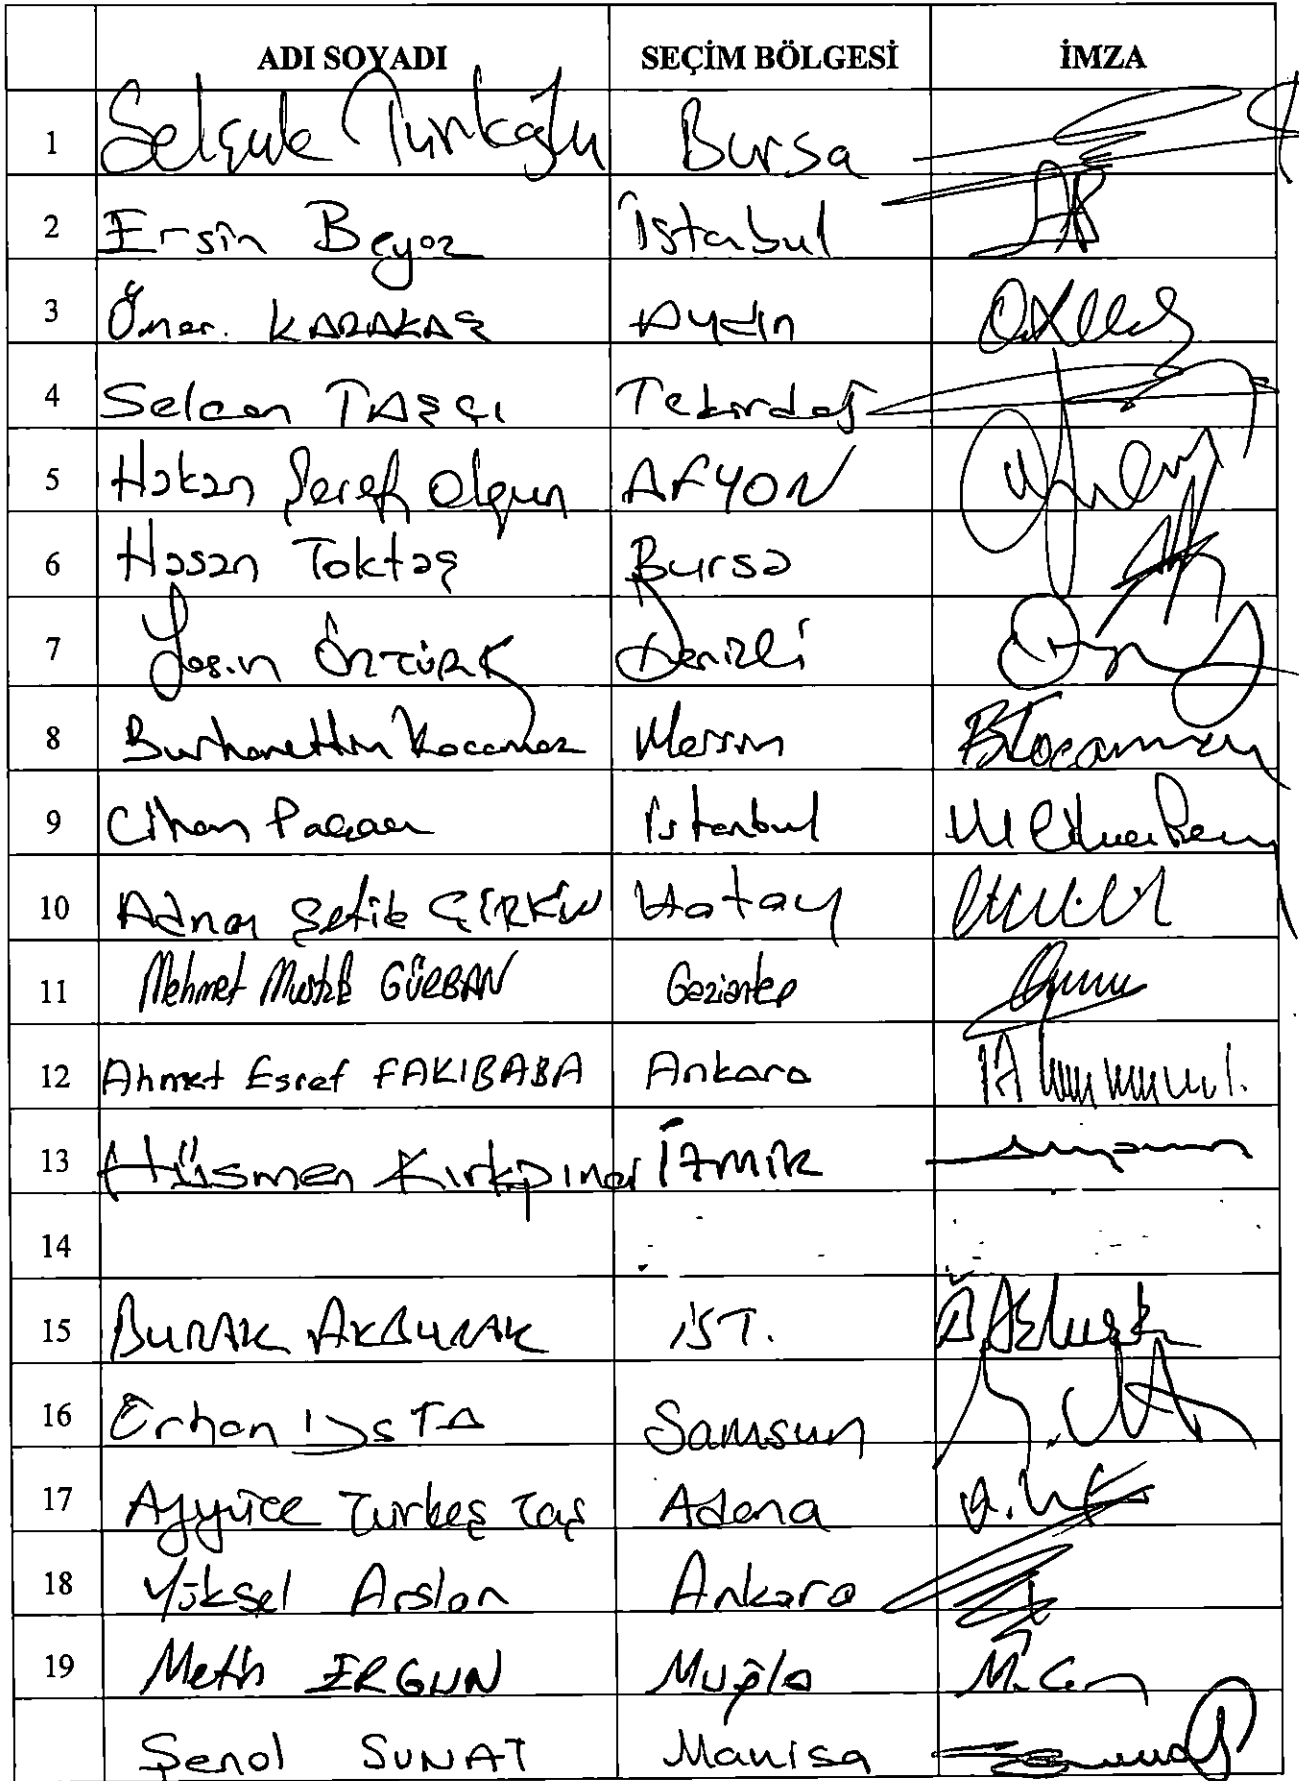 ADI SOYADI SEÇİM BÖLGESİ İMZA
1 Selçuk Türkoğlu Bursa
2 Ersin Beyaz İstanbul
3 Ömer. KARAKAŞ Aydın
4 Selcan TAŞÇI Tekirdağ
5 Hakan Şeref Olgun AFYON
6 Hasan Toktaş Bursa
7 Yasin ÖZTÜRK Denizli
8 Burhanettin Kocamaz Mersin
9 Cihan Paçacı İstanbul
10 Adnan Şefik ÇİRKİN Hatay
11 Mehmet Mustafa GÜRBAN Gaziantep
12 Ahmet Eşref FAKIBABA Ankara
13 Hüsmen Kırkpınar İZMİR
14
15 BURAK AKBURAK İST.
16 Erhan USTA Samsun
17 Ayyüce Türkeş Taş Adana
18 Yüksel Arslan Ankara
19 Metin ERGUN Muğla
Şenol SUNAT Manisa